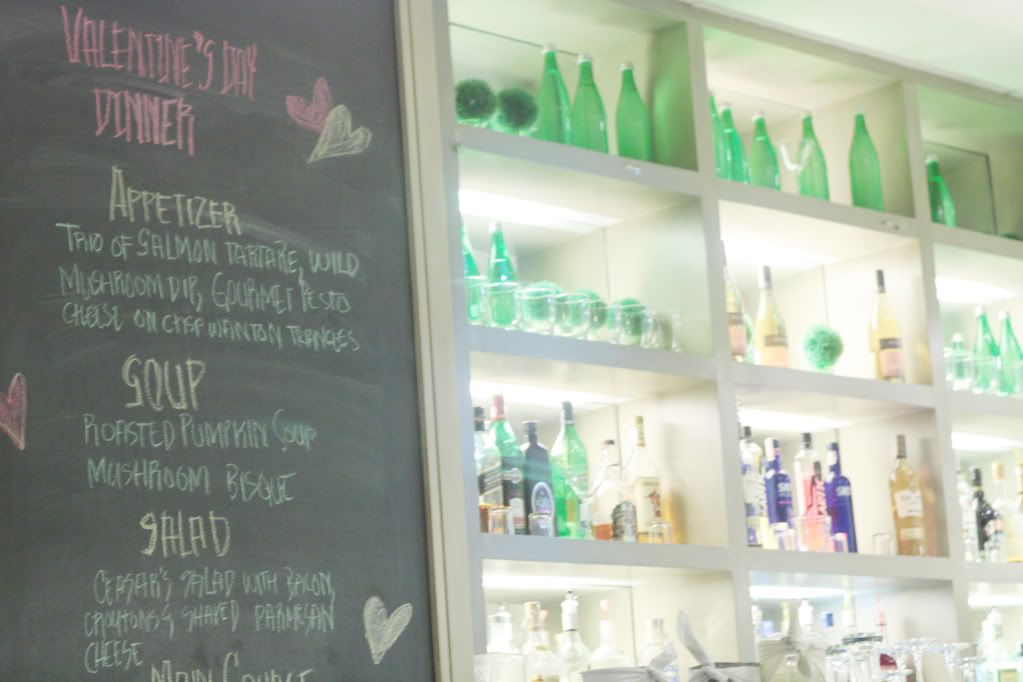 VALENTINE'S DAY
DINNER
APPETIZER
TRIO OF SALMON TARTARE, WILD
MUSHROOM DIP, GOURMET PESTO
CHEESE ON CRISP WANTON TRIANGLES
SOUP
ROASTED PUMPKIN SOUP
MUSHROOM BISQUE
SALAD
CEASAR'S SALAD WITH BACON,
CROUTONS, SHAVED PARMESAN
CHEESE
MAIN COURSE